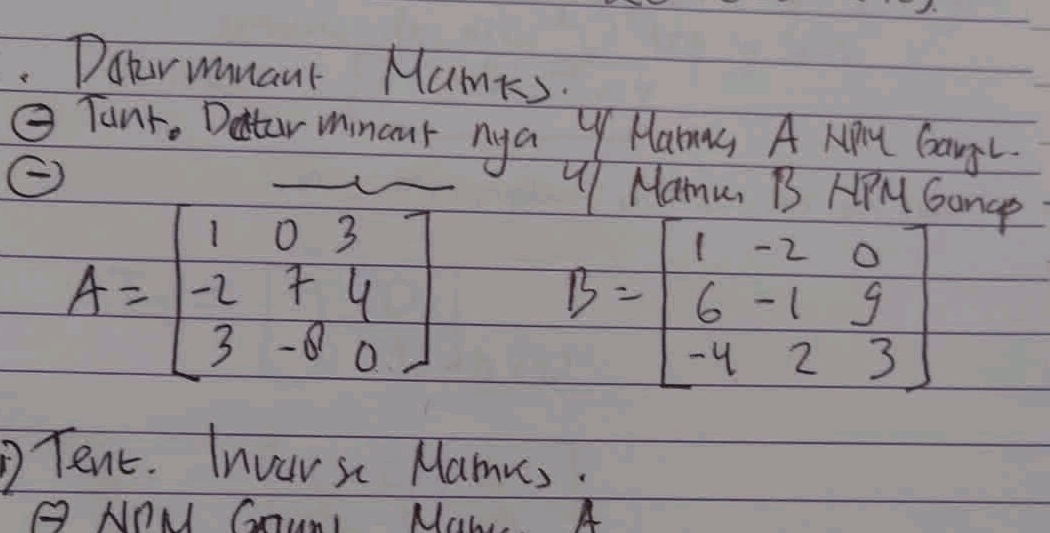 Determinant Matriks.
Tent. Determinant nya u/ Matriks A NPM Ganjil.
u/ Matriks B NPM Genap
1 0 3
A = -2 7 4
3 -8 0
1 -2 0
B = 6 -1 9
-4 2 3
Tent. Inverse Matriks.
NPM Ganjil Matriks A